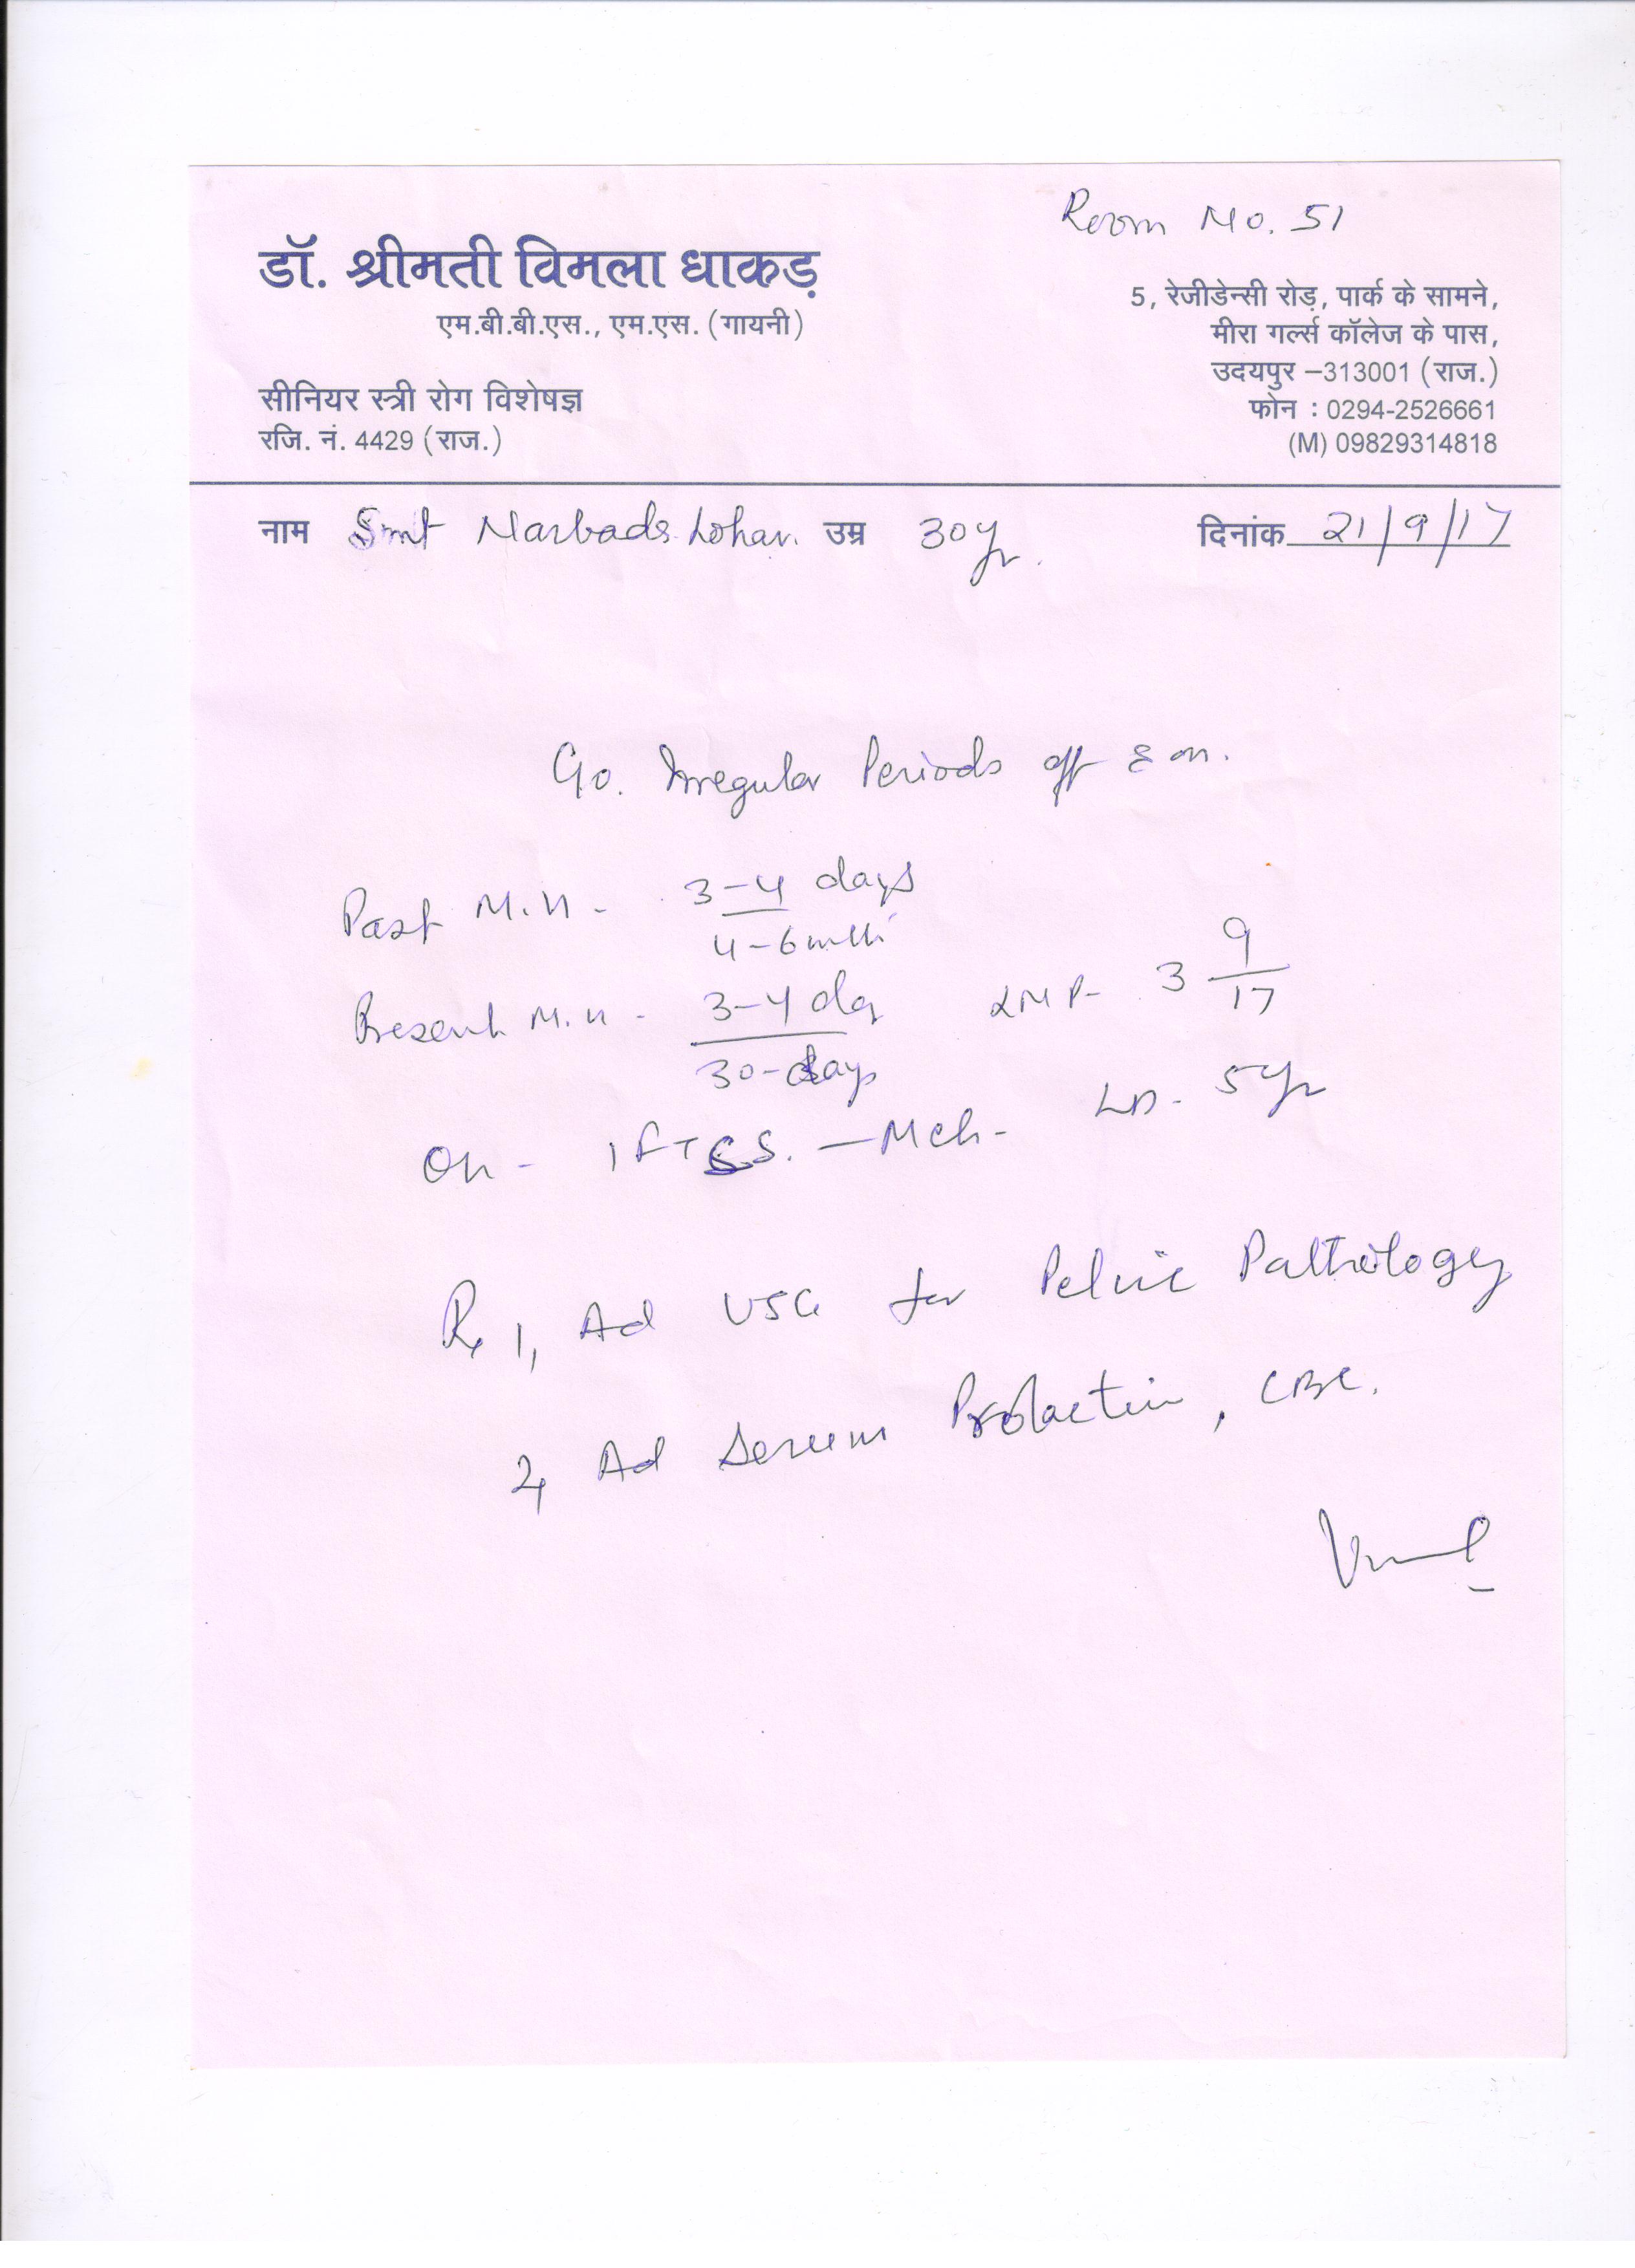 Room No. 51
डॉ. श्रीमती विमला धाकड़
एम.बी.बी.एस., एम.एस. (गायनी)
सीनियर स्त्री रोग विशेषज्ञ
रजि. नं. 4429 (राज.)
5, रेजीडेन्सी रोड़, पार्क के सामने,
मीरा गर्ल्स कॉलेज के पास,
उदयपुर –313001 (राज.)
फोन : 0294-2526661
(M) 09829314818
नाम Smt Narbada Lohar. उम्र 30 yr. दिनांक 21/9/17
C/o. Irregular Periods off & on.
Past M.H - 3-4 days
4-6 mth
Present M.H - 3-4 day LMP- 3 9/17
30-days
OH - 1 FT S. - Mch- LD- 5 yr
Rx 1, Ad USG for Pelvic Pathology
2, Ad Serum Prolactin, CBC.